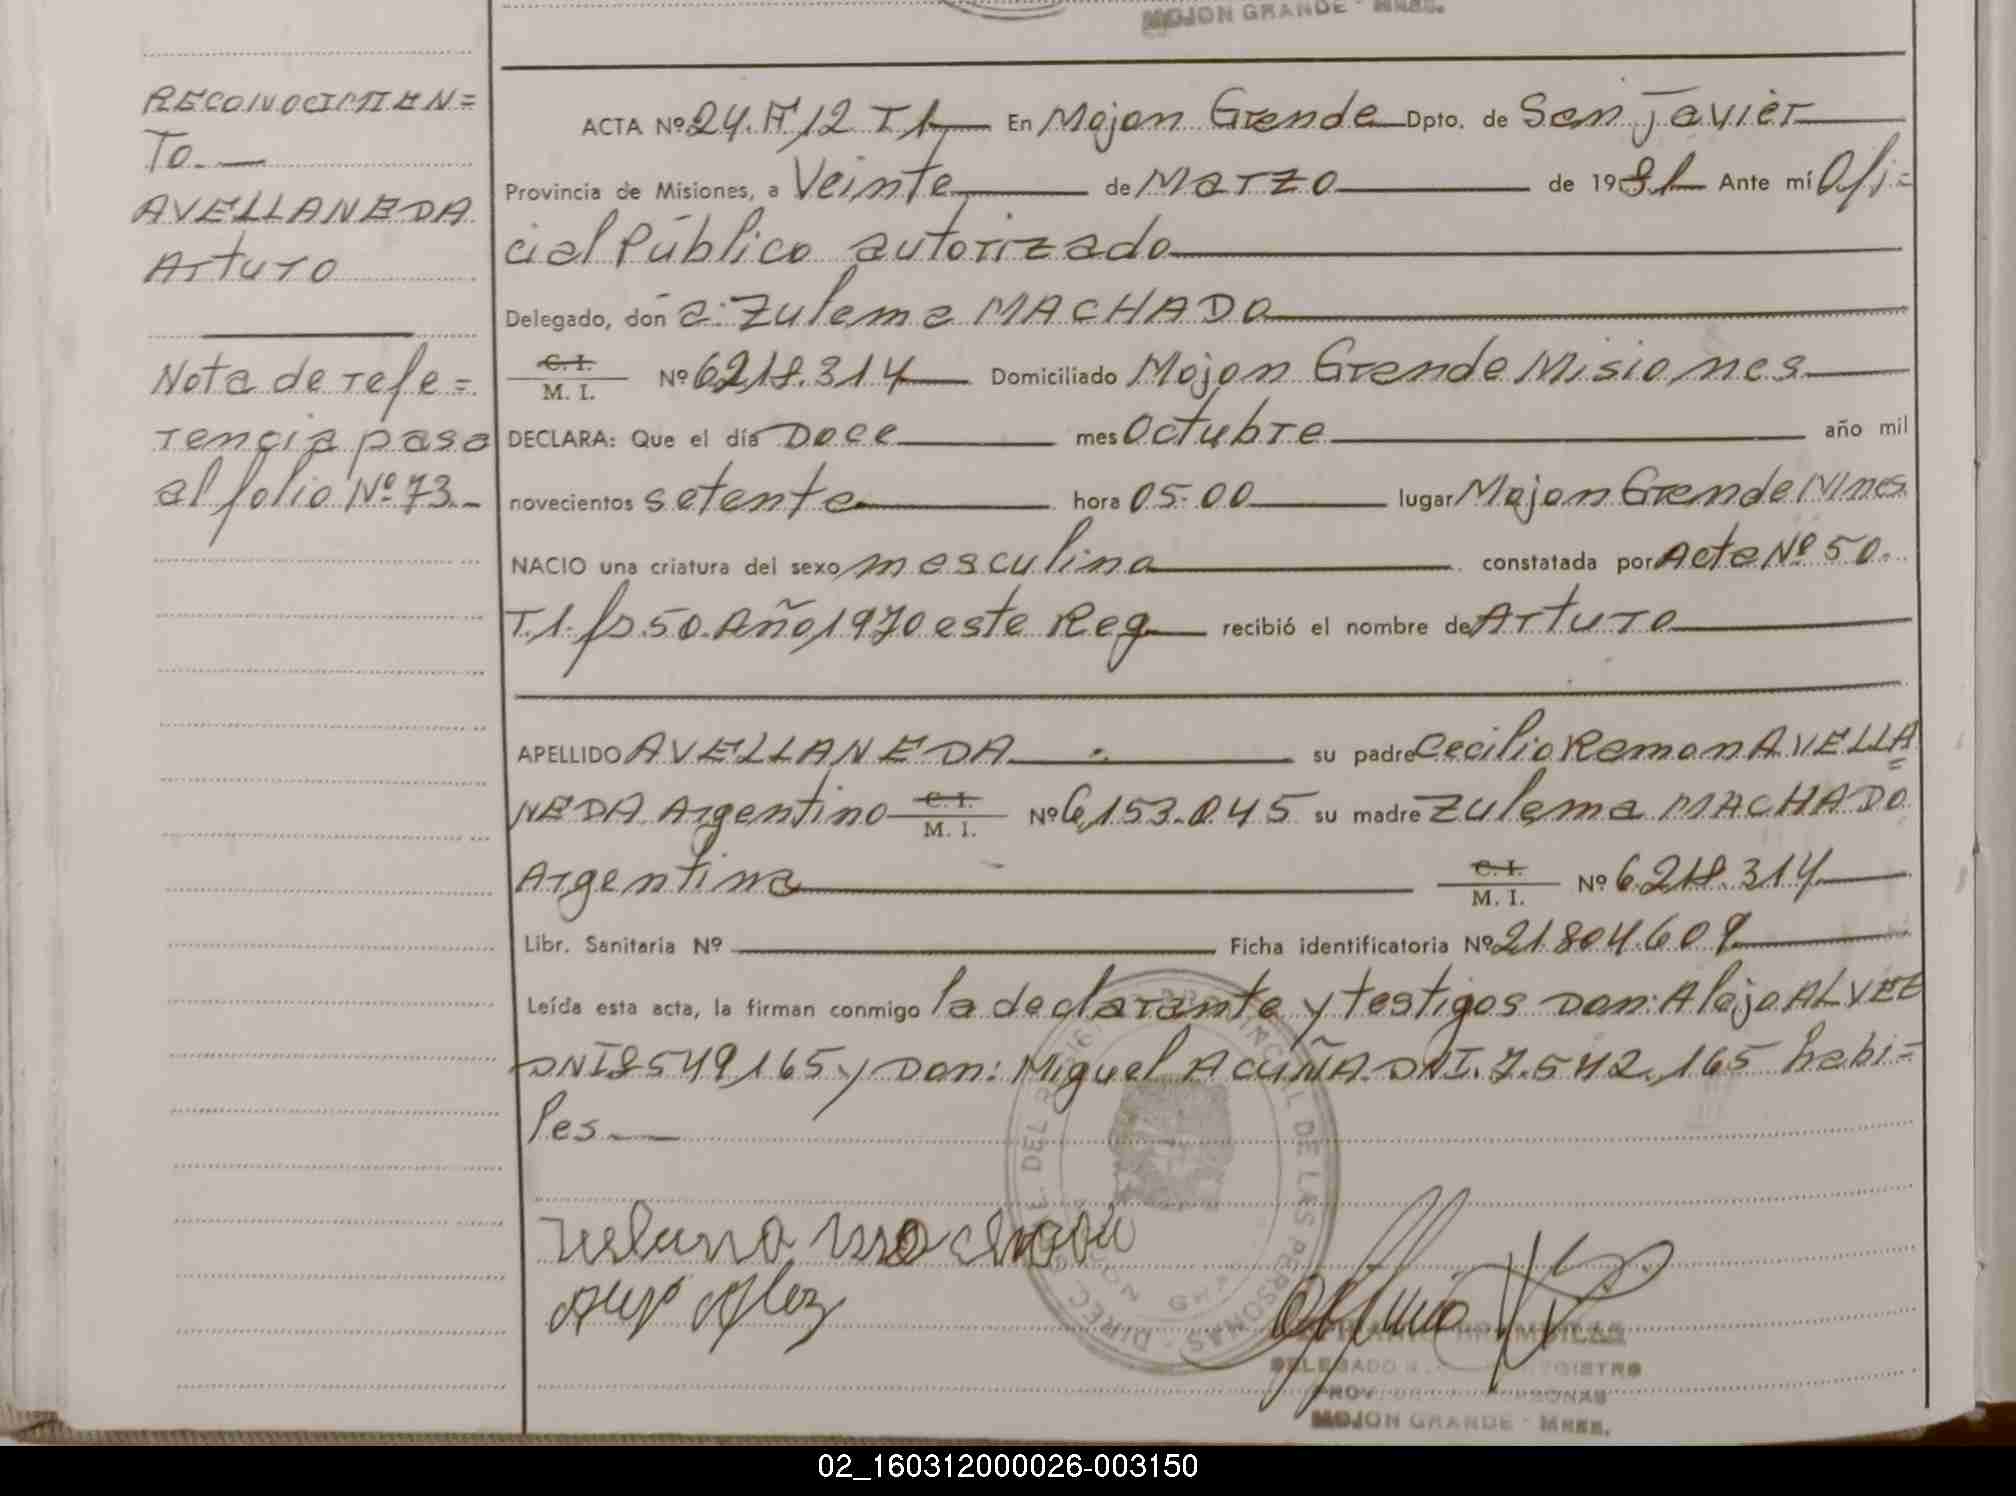 MOJON GRANDE - Mnes.
RECONOCIMIEN=
To.
AVELLANEDA
Arturo
Nota de refe=
rencia pasa
al folio Nº 73.-
ACTA Nº 24. Fº 12 T 1 En Mojon Grande Dpto. de San Javier
Provincia de Misiones, a Veinte de Marzo de 1981 Ante mí Ofi=
cial Público autorizado
Delegado, don a: Zulema MACHADO
C. I. / M. I. Nº 6218.314 Domiciliado Mojon Grande Misiones
DECLARA: Que el día Doce mes Octubre año mil
novecientos setenta hora 05-00 lugar Mojon Grande Mnes
NACIO una criatura del sexo masculino constatada por Acta Nº 50.
T.1. fº.50. Año 1970 este Reg recibió el nombre de Arturo
APELLIDO AVELLANEDA su padre Cecilio Ramon AVELLA
NEDA Argentino C. I. / M. I. Nº 6,153.045 su madre Zulema MACHADO
Argentina C. I. / M. I. Nº 6.218.314
Libr. Sanitaria Nº Ficha identificatoria Nº 21.804.609
Leída esta acta, la firman conmigo la declarante y testigos Don: Alejo ALVEZ
DNI 8549,165 y Don: Miguel ACUÑA. DNI. 7.542.165 habi=
les.
DIREC. DEL PROVINCIAL DE LAS PERSONAS
DELEGADO
MOJON GRANDE - Mnes.
02_160312000026-003150